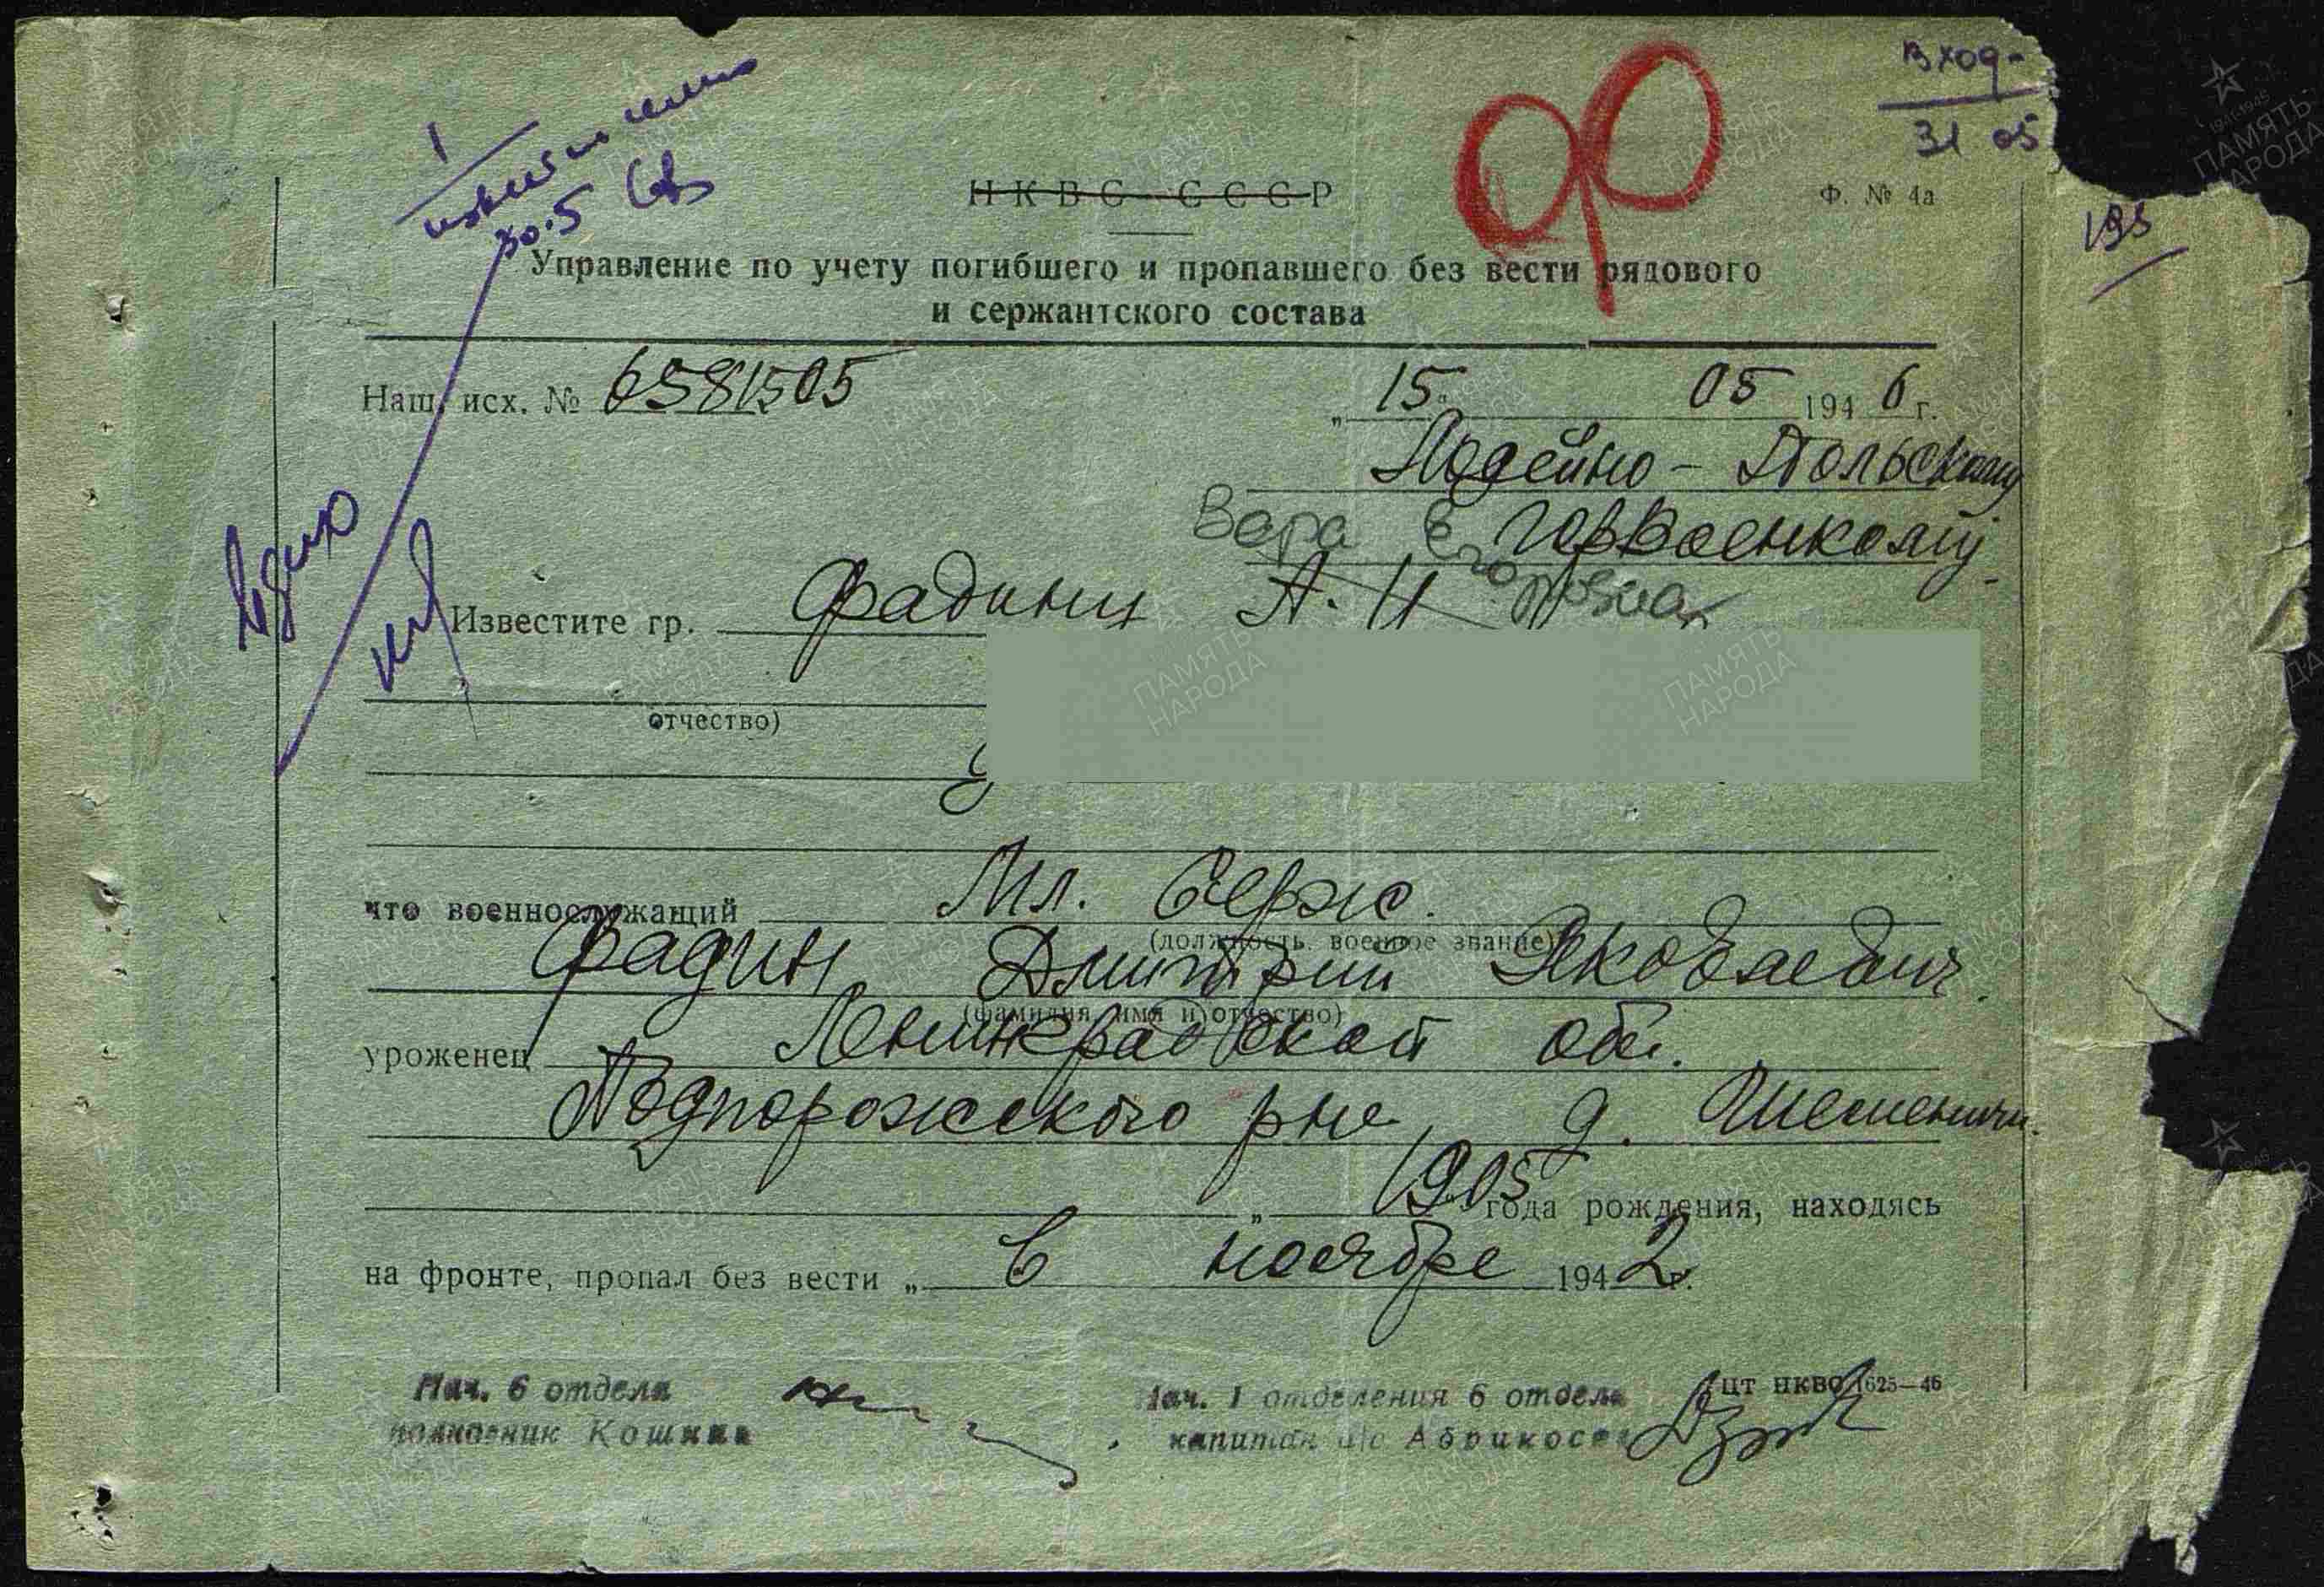 Вход-
31 05
195
30.5
Н К В С С С С Р
Ф. № 4а
Управление по учету погибшего и пропавшего без вести рядового
и сержантского состава
Наш. исх. № 6581505
„ 15 " 05 194 6 г.
Лодейно - Польскому
Горвоенкому
Вера Егоровна
Известите гр. Фадину А. И
отчество)
что военнослужащий Мл. Серж.
(должность, военное звание)
Фадин Дмитрий Яковлевич
(фамилия, имя и отчество)
уроженец Ленинградской обл.
Подпорожского р-на д.
„ 1905 года рождения, находясь
на фронте, пропал без вести „ в ноябре 194 2 г.
Нач. 6 отдела
полковник Кошкин
Нач. 1 отделения 6 отдела
капитан а/с Абрикосов
ЦТ НКВС 1625—46
ПАМЯТЬ
НАРОДА